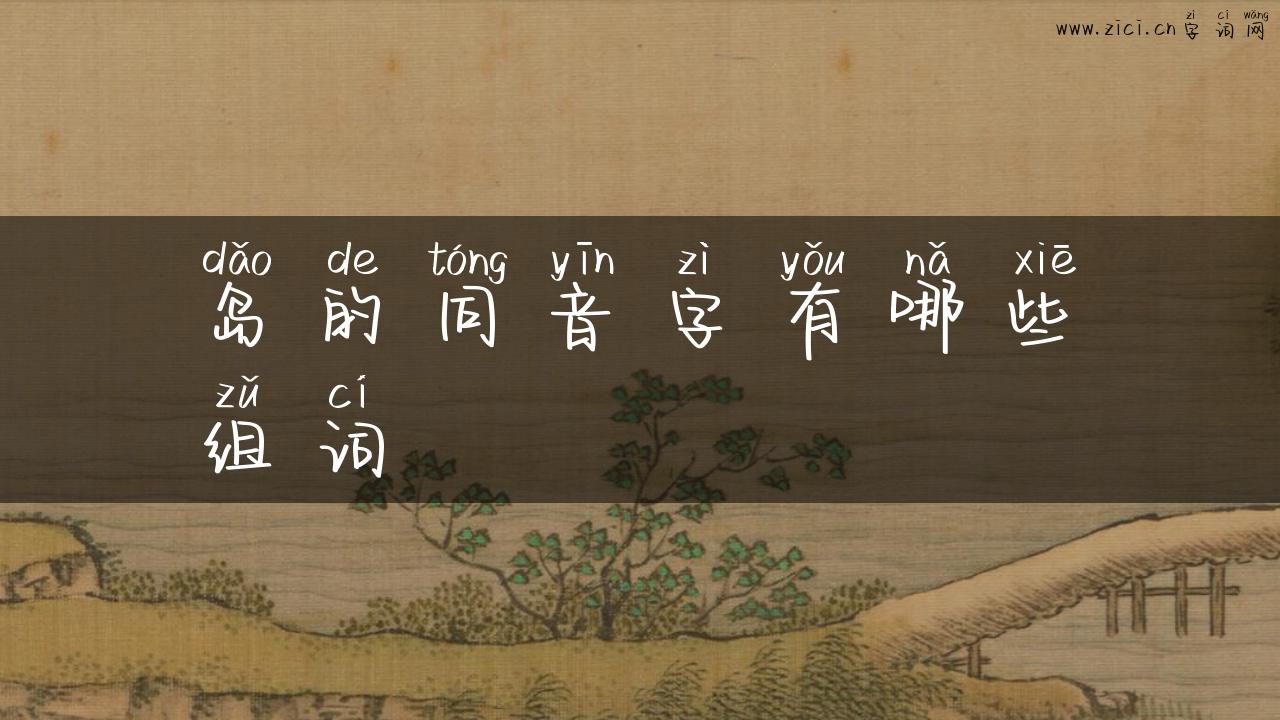 zì cí wǎng
www.zici.cn 字 词 网
dǎo de tóng yīn zì yǒu nǎ xiē
岛 的 同 音 字 有 哪 些
zǔ cí
组 词